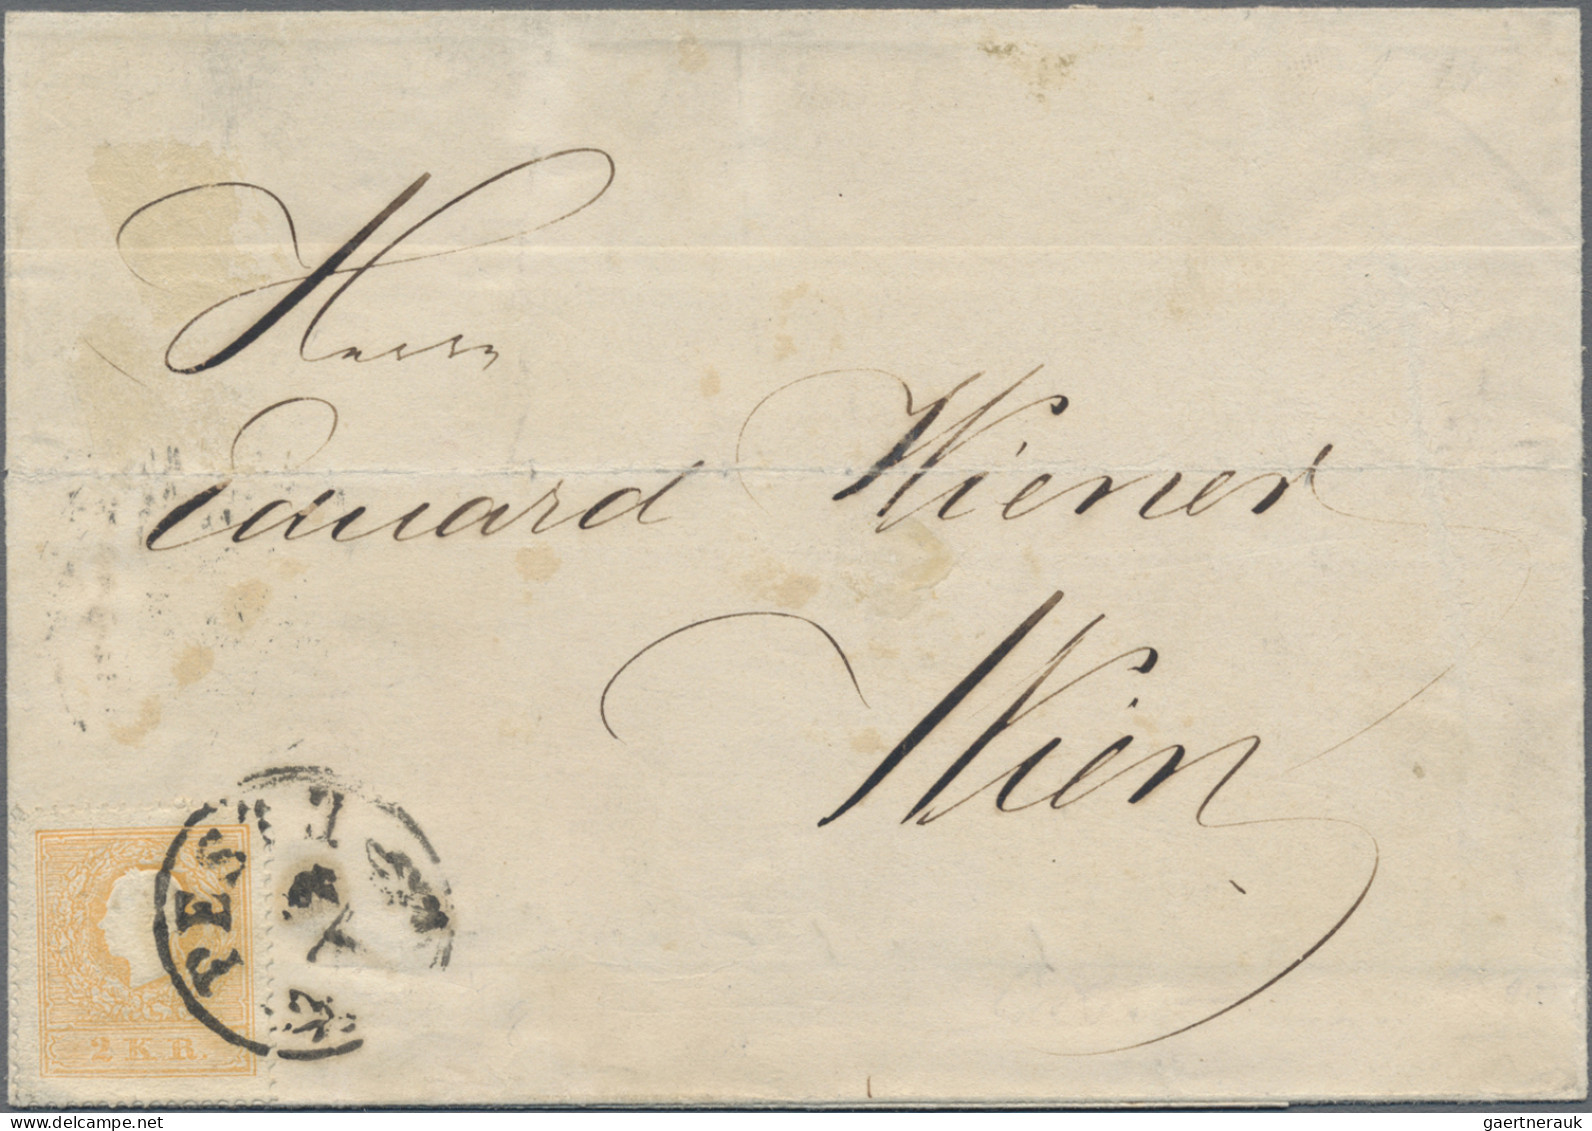 Herrn
Eduard Wiener
Wien
PEST
2 KR.
gaertnerauk